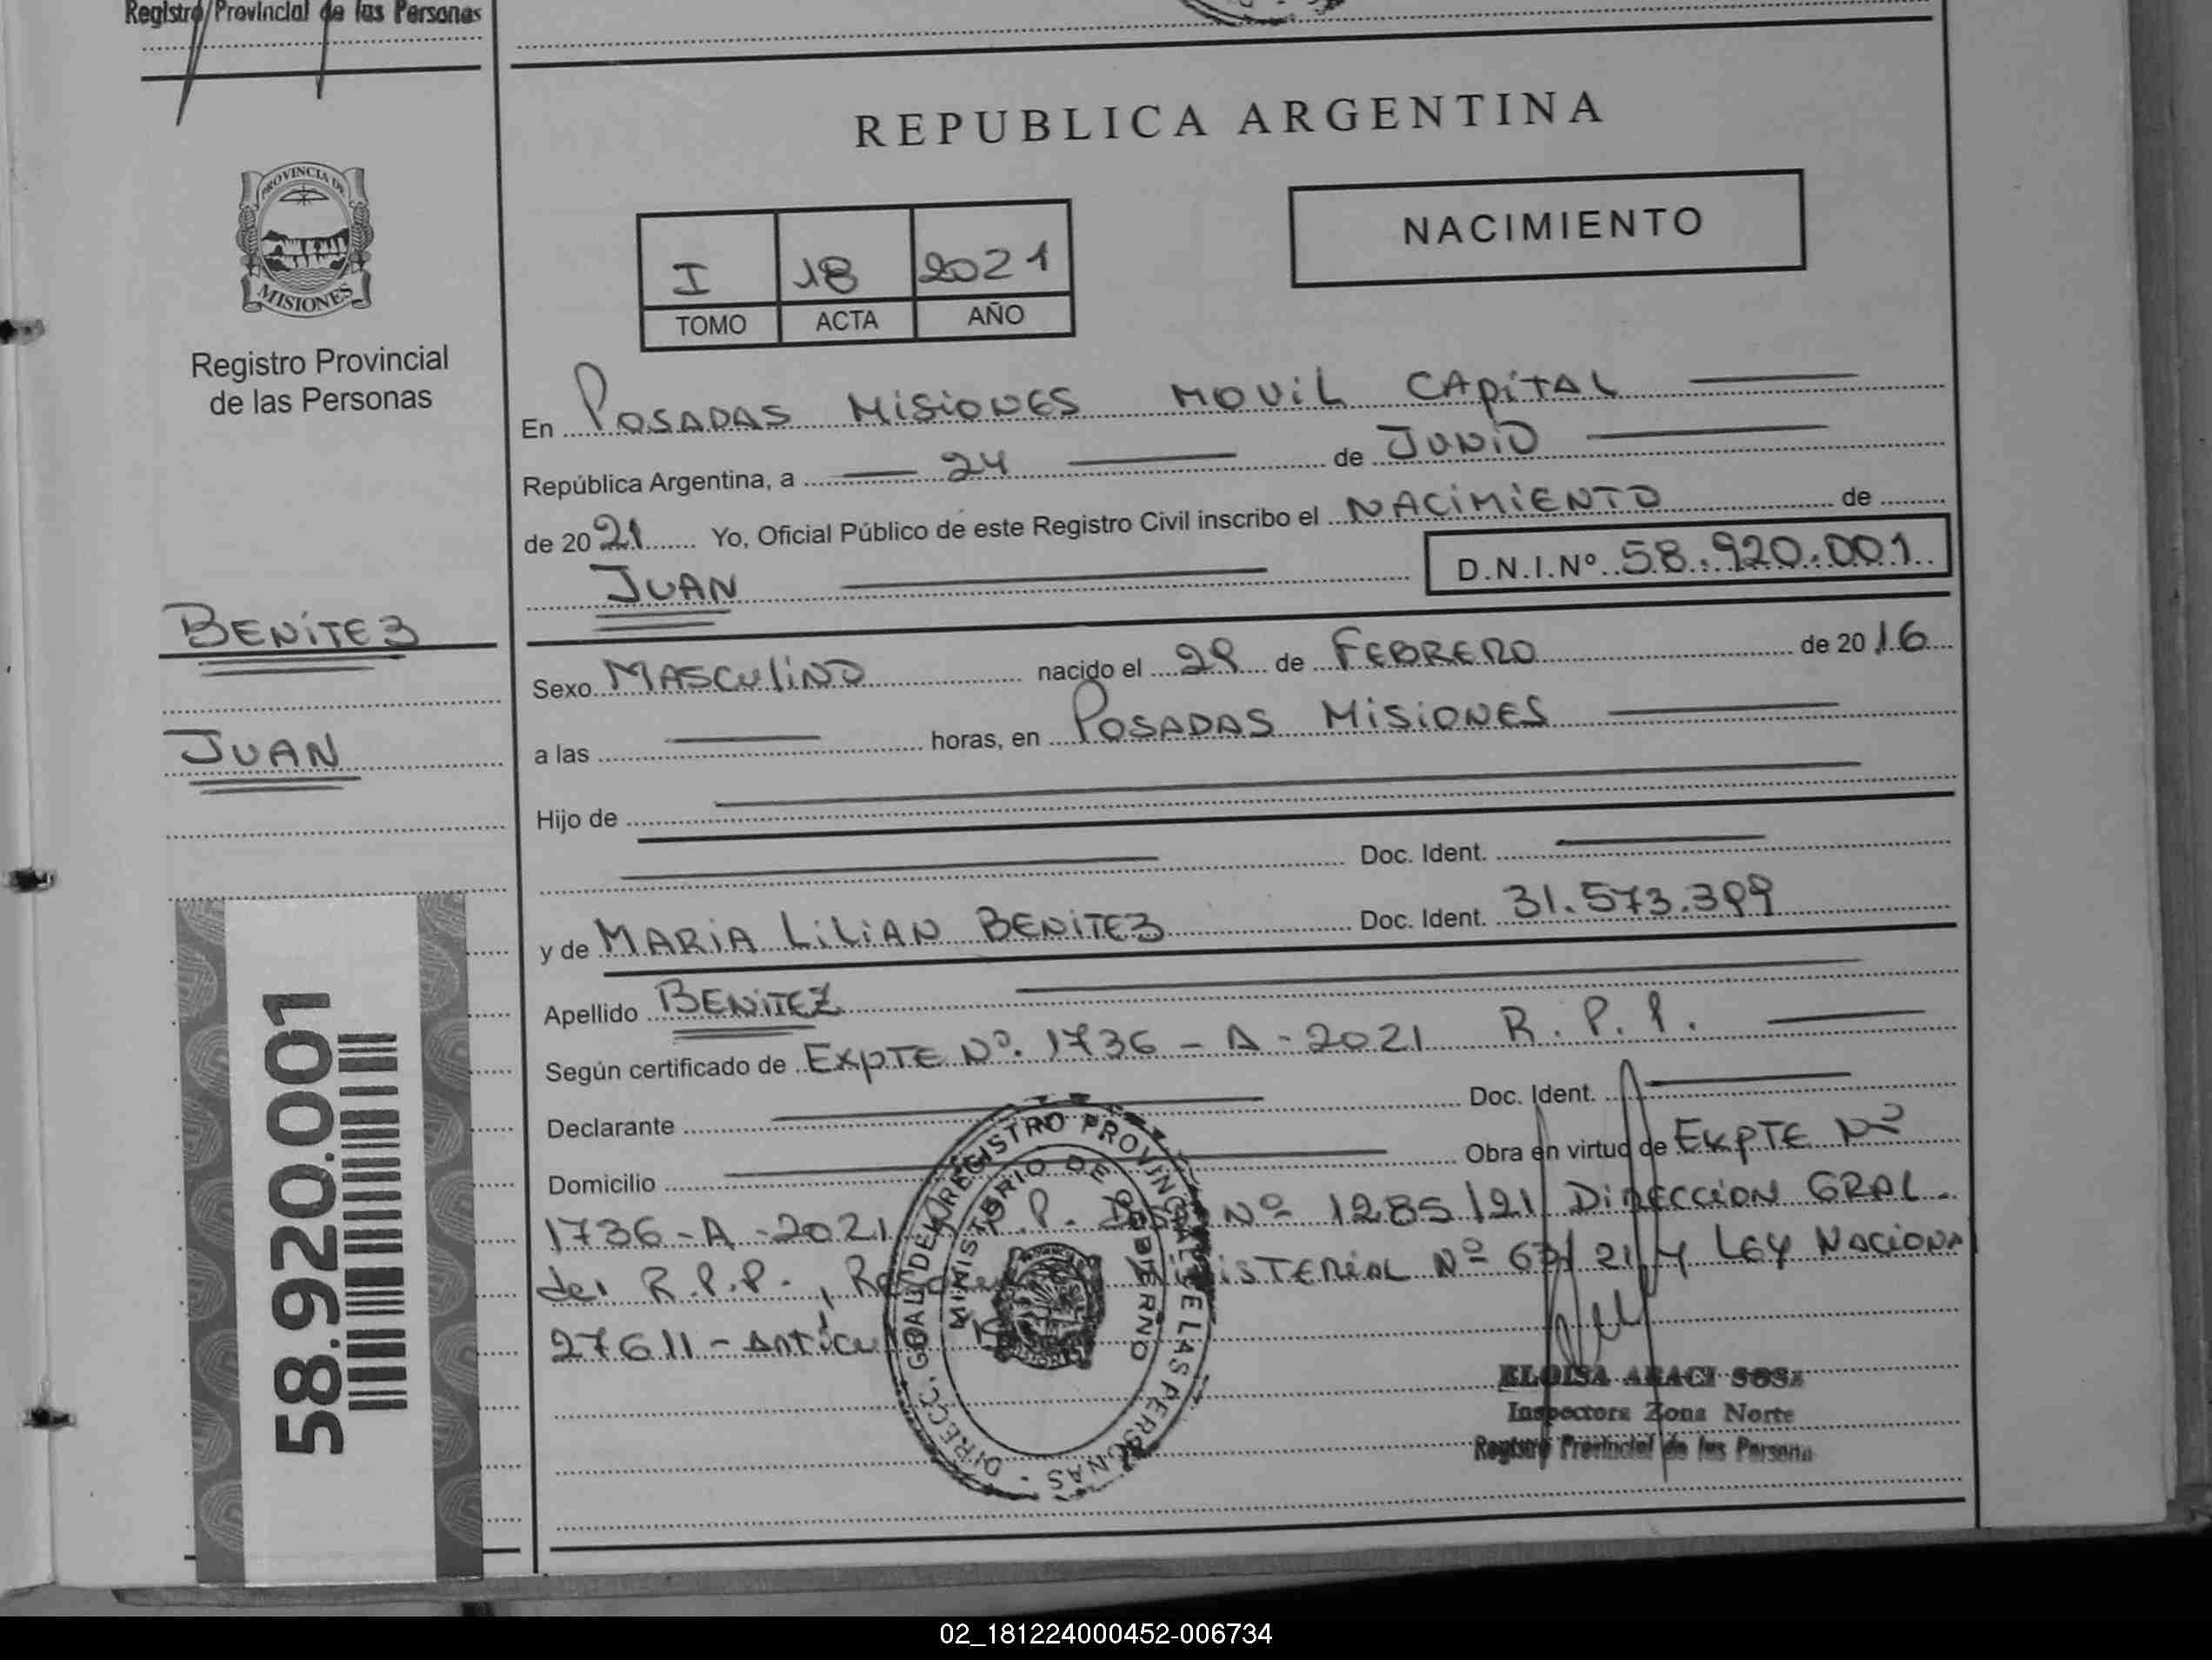 Registro Provincial de las Personas
REPUBLICA ARGENTINA
PROVINCIA DE
MISIONES
Registro Provincial
de las Personas
NACIMIENTO
I 18 2021
TOMO ACTA AÑO
En POSADAS MISIONES MOVIL CAPITAL
República Argentina, a 24 de JUNIO
de 2021 Yo, Oficial Público de este Registro Civil inscribo el NACIMIENTO de
JUAN D.N.I.Nº 58.920.001
BENITEZ
JUAN
Sexo MASCULINO nacido el 29 de FEBRERO de 2016
a las horas, en POSADAS MISIONES
Hijo de
Doc. Ident.
y de MARIA LILIAN BENITEZ Doc. Ident. 31.573.399
Apellido BENITEZ
Según certificado de EXPTE Nº. 1736 - A - 2021 R. P. P.
Declarante Doc. Ident.
Domicilio Obra en virtud de EXPTE Nº
1736 - A - 2021 P. Nº 1285/21 DIRECCION GRAL
del R.P.P., Nº 63/21 y LEY NACIONAL
27611 -
58.920.001
DIRECC. GRAL. DEL REGISTRO PROVINCIAL DE LAS PERSONAS
MINISTERIO DE GOBIERNO
ELOISA ARACI SOSA
Inspectora Zona Norte
Registro Provincial de las Persona
02_181224000452-006734